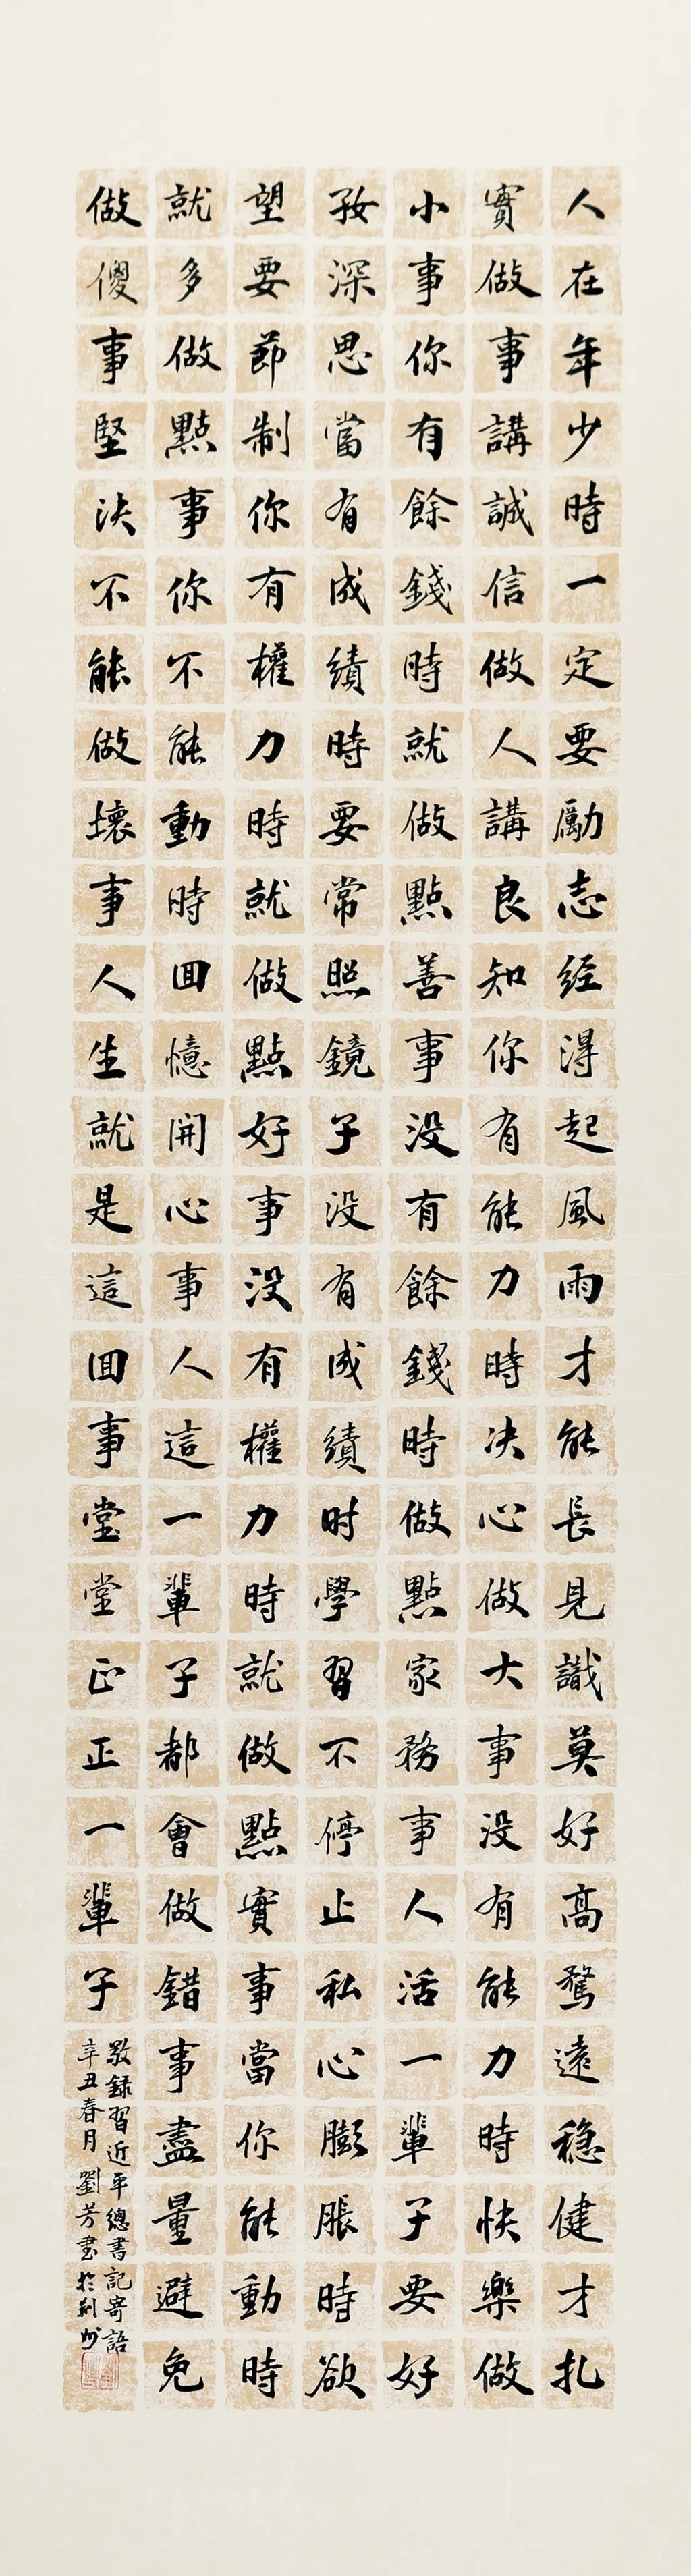 人在年少時一定要勵志经得起風雨才能長見識莫好高騖遠穩健才扎
實做事講誠信做人講良知你有能力時决心做大事没有能力時快樂做
小事你有餘錢時就做點善事没有餘錢時做點家務事人活一輩子要好
孜深思當有成績時要常照鏡子没有成績时學習不停止私心膨脹時欲
望要節制你有權力時就做點好事没有權力時就做點實事當你能動時
就多做點事你不能動時回憶開心事人這一輩子都會做錯事盡量避免
做傻事堅决不能做壞事人生就是這回事堂堂正正一輩子
敬録習近平總書記寄語
辛丑春月劉芳書於荆州